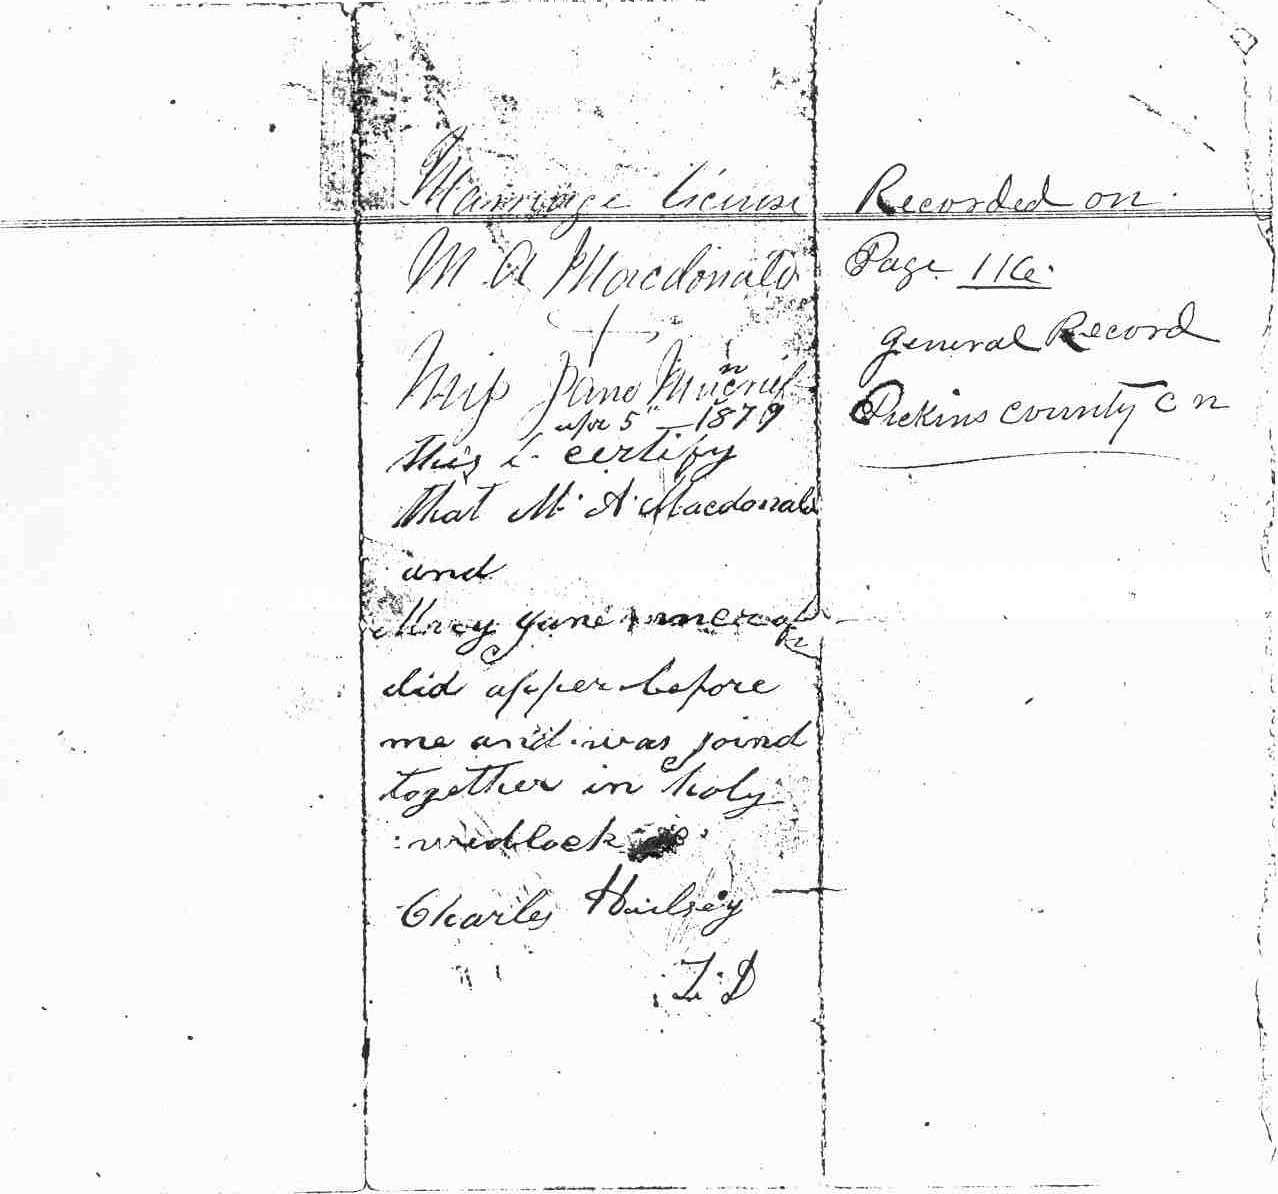 Marriage License
M A Macdonald
+
Miss Jane
apr 5" 1879
this is certify
that M. A. Macdonald
and
Mrcy Jane
did apper before
me and was joind
together in holy
wedlock
Charles Hailsey
Recorded on
Page 116
General Record
Pickins County C n